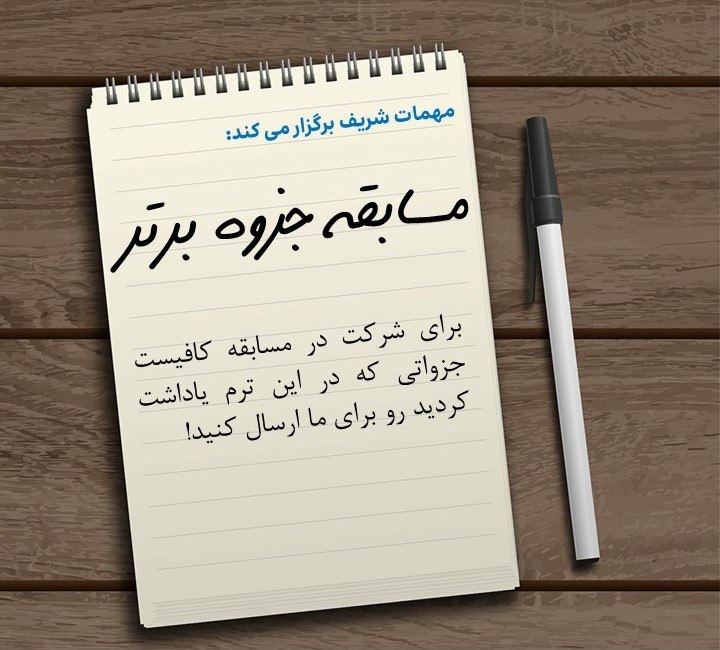 مهمات شریف برگزار می کند:
مسابقه جزوه برتر
برای شرکت در مسابقه کافیست
جزواتی که در این ترم یاداشت
کردید رو برای ما ارسال کنید!